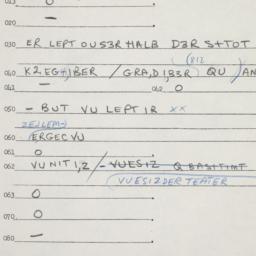 013 O
020 —
030 ER LEPT OUS3R HALB D3R S+TOT
(812
040 K2EG+)BER / GRA,D1B3R) QU /AN
041 — 042 O
050 - BUT VU LEPT IR XX
060 /ERGEC VU
061 O
062 VU NIT 1,2/- VUESIZ Q BASITIMT
VUESIZ DER TEATER
063 O
070 O
080 —